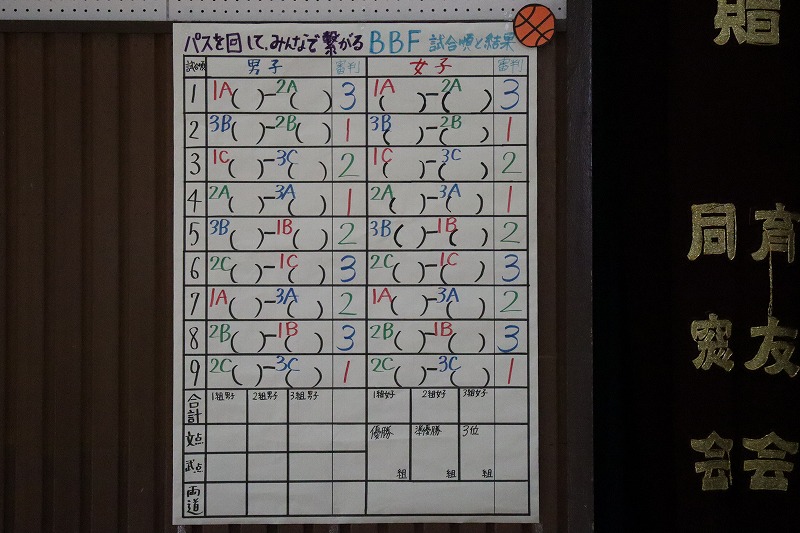 パスを回して、みんなで繋がる BBF 試合順と結果
試合順 男子 審判 女子 審判
1 1A( )-2A( ) 3 1A( )-2A( ) 3
2 3B( )-2B( ) 1 3B( )-2B( ) 1
3 1C( )-3C( ) 2 1C( )-3C( ) 2
4 2A( )-3A( ) 1 2A( )-3A( ) 1
5 3B( )-1B( ) 2 3B( )-1B( ) 2
6 2C( )-1C( ) 3 2C( )-1C( ) 3
7 1A( )-3A( ) 2 1A( )-3A( ) 2
8 2B( )-1B( ) 3 2B( )-1B( ) 3
9 2C( )-3C( ) 1 2C( )-3C( ) 1
合計 1組男子 2組男子 3組男子 1組女子 2組女子 3組女子
文点 優勝 準優勝 3位
武点 組 組 組
両道
贈
育友会
同窓会